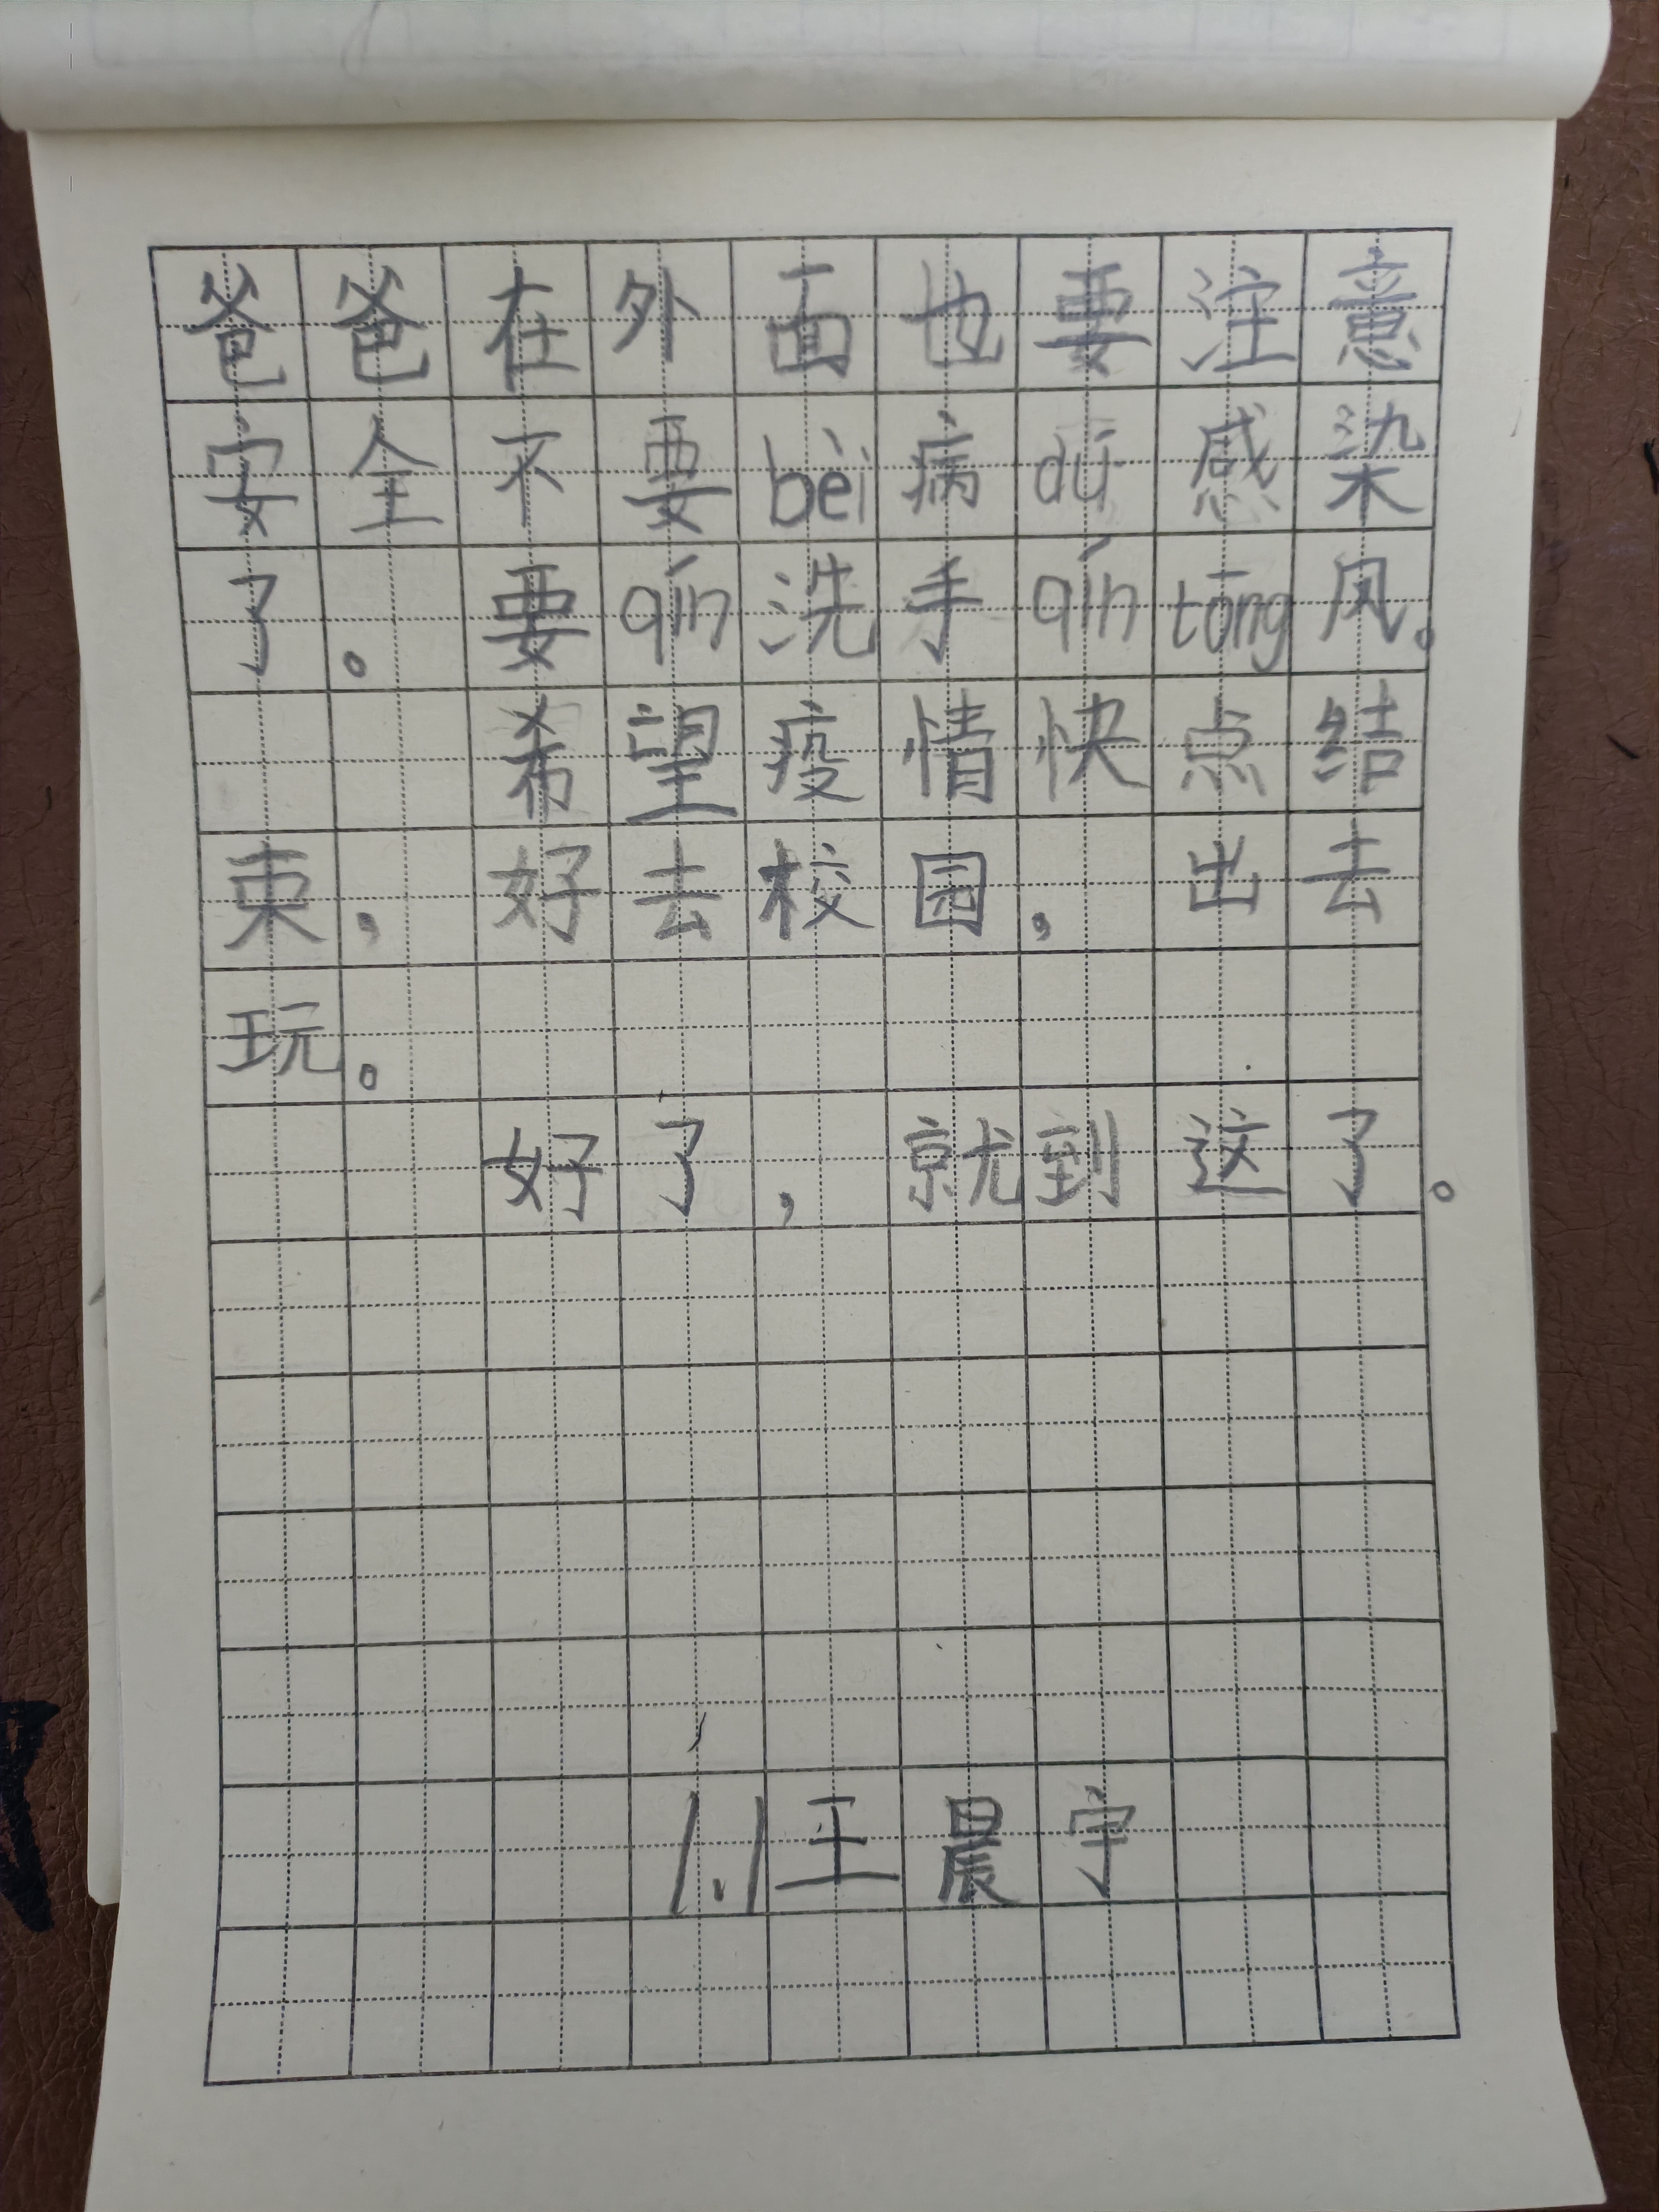 爸爸在外面也要注意
安全不要bèi病dú感染
了。要qín洗手qíntōng风。
希望疫情快点结
束，好去校园，出去
玩。
好了，就到这了。
1.1王晨宇